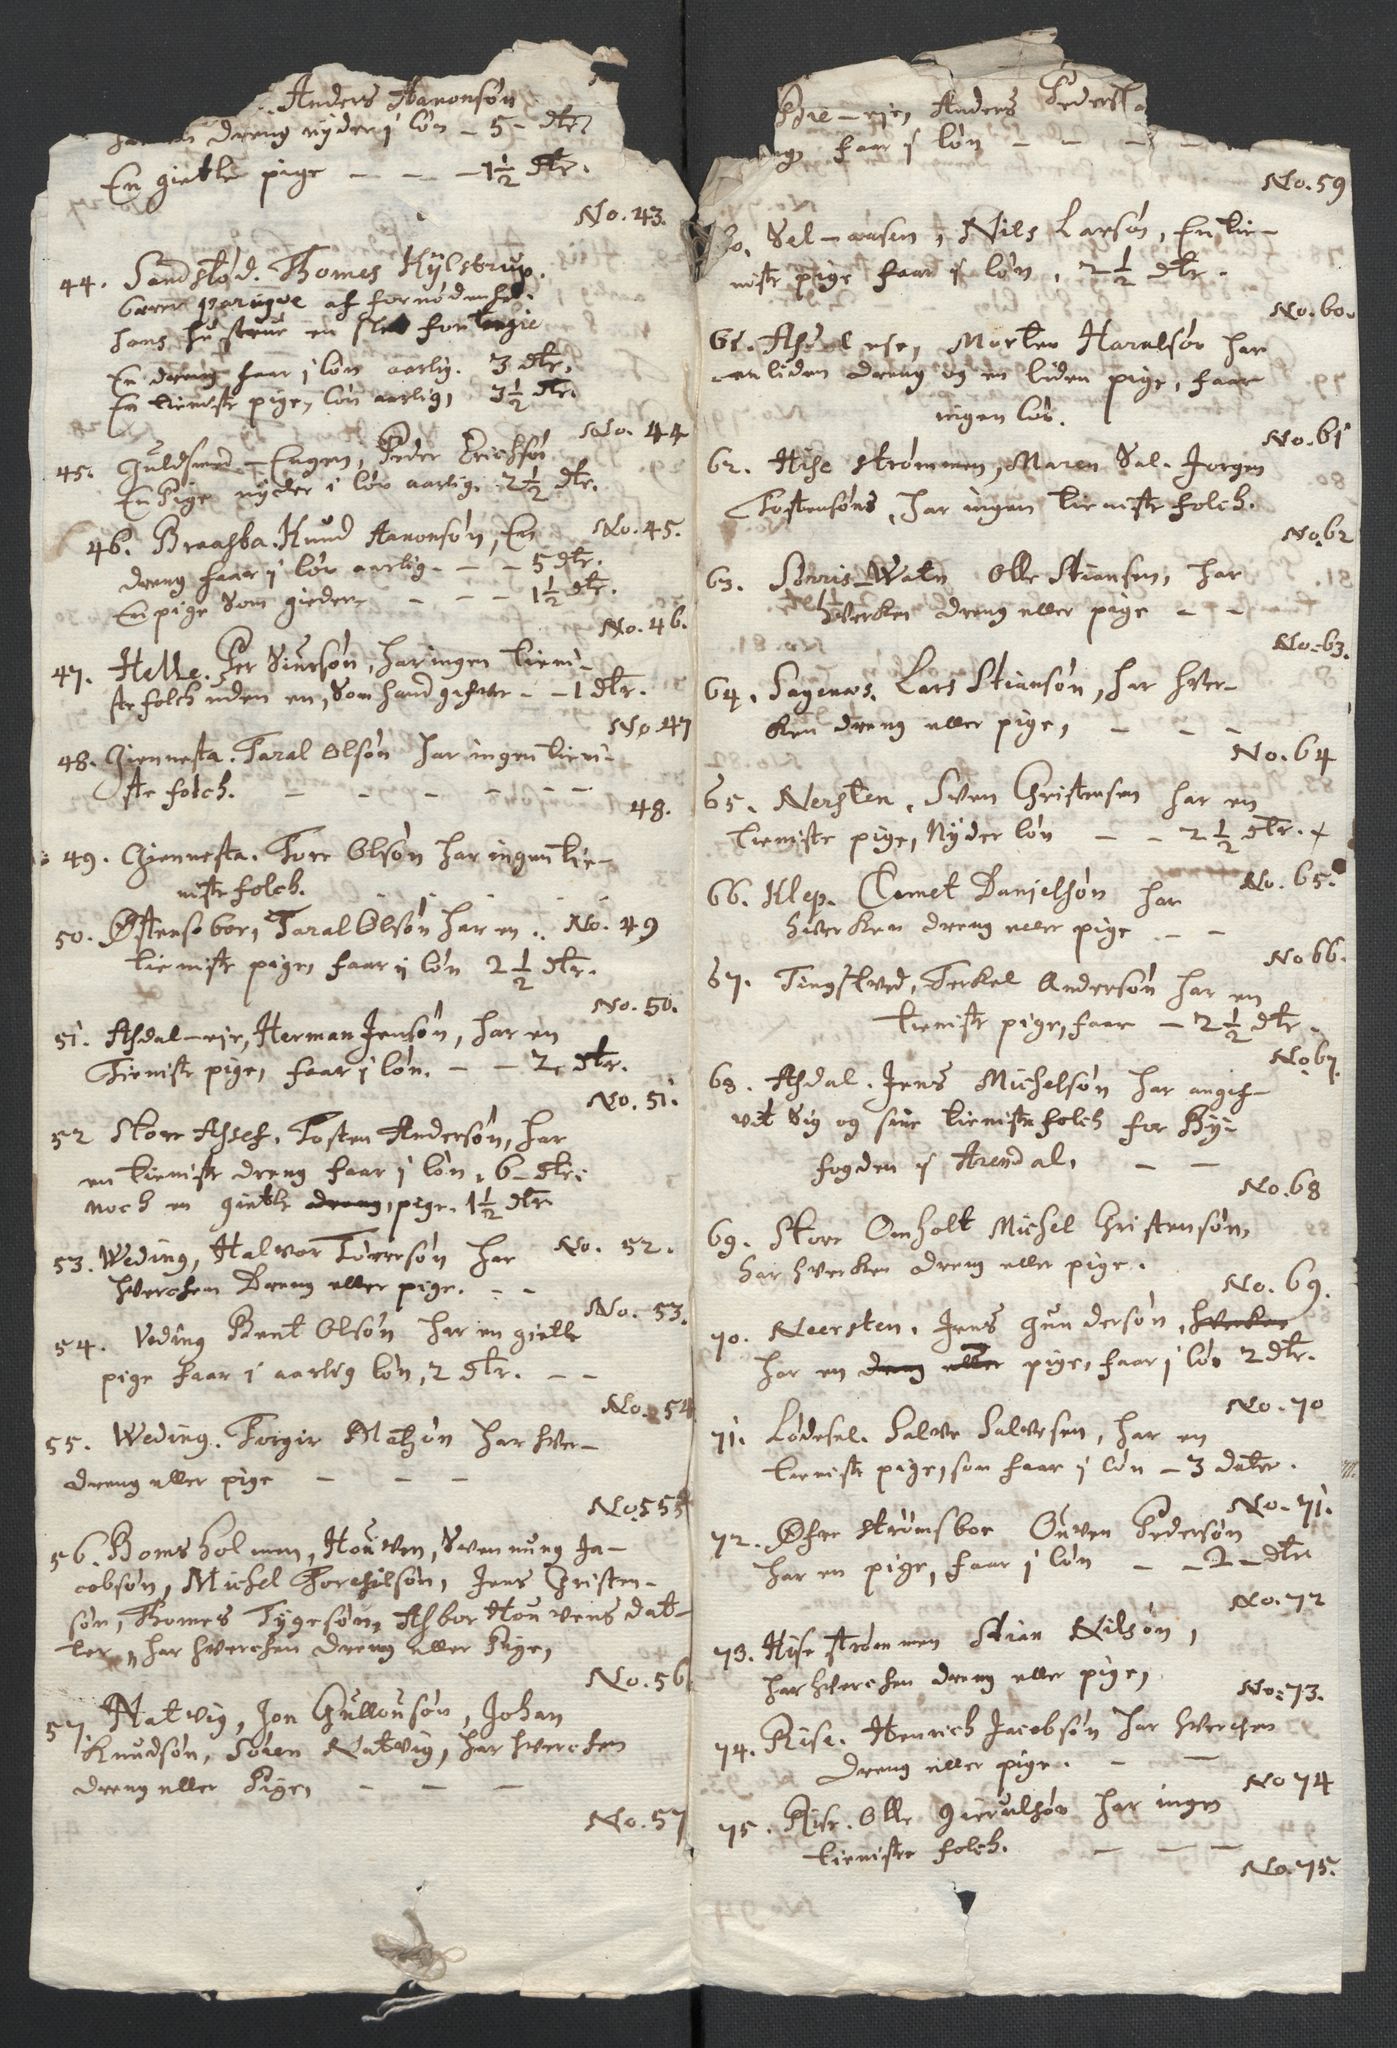 Anders Aanonsøn
dreng nyder i løn - 5 - dlr
En gietle pige - - - 1½ dlr.
No. 43.
44. Sandstød. Thomes Kylstrup.
bærer paruque af fornødenhed.
hans hustrue en
En dreng faar i løn aarlig. 3 dlr.
En tieniste pige, løn aarlig, 3½ dlr.
No. 44
45. Guldsmed-Engen, Peder Erichsøn
En Pige nyder i løn aarlig 2½ dlr.
No. 45.
46. Braasba. Knud Aanonsøn, En
dreng faar i løn aarlig - - - 5 dlr.
En pige som gieder - - - 1½ dlr.
No. 46.
47. Helle. Per Siursøn, har ingen tieni-
ste folch uden en, som hand gifver - - 1 dlr.
No. 47
48. Giennesta. Taral Olsøn har ingen tieni-
ste folch. - - - - - -
48.
49. Giennesta. Tore Olsøn har ingen tie-
niste folch.
No. 49
50. Østensboe, Taral Olsøn har en
tieniste pige, faar i løn 2½ dlr.
No. 50.
51. Asdal-eje, Herman Jensøn, har en
Tieniste pige, faar i løn. - - 2 dlr.
No. 51.
52 Store Assef. Tosten Andersøn, har
en tieniste dreng faar i løn, 6 - dlr.
noch en gietle dreng, pige. 1½ dlr.
No. 52.
53. Weding, Halvor Torersøn har
hverchen Dreng eller pige. - -
No. 53.
54. Veding Bent Olsøn har en gietle
pige faar i aarlig løn, 2 dlr. - -
No. 54
55. Weding. Torgir Matzøn har hver-
dreng eller pige - - -
No. 55
56. Bomsholmen, Houven, Svennung Ja-
cobsøn, Michel Torchilsøn, Jens Christen-
søn, Thomes Tygesøn, Asbor Houvens dat-
ter, har hverchen dreng eller Pige,
No. 56
57. Natvig, Jon Gullousøn, Johan
Knudsøn, Søren Natvig, har hverchen
dreng eller Pige, - - -
No. 57
eje, Anders Peders
faar i løn - - - -
No. 59
Sel-aasen, Nils Larsøn, En tie-
niste pige faar i løn, 2½ dlr.
No. 60.
61. Morten Haralsøn har
en liden dreng og en liden pige, faar
ingen løn.
No. 61
62. Hise strømmen, Maren Sal. Jørgen
Tostensøns, har ingen tieniste folch.
No. 62
63. Olle Stiansen, har
hverken dreng eller pige - -
No. 63.
64. Sagenes. Lars Stiansøn, har hver-
ken dreng eller pige, - - -
No. 64
65. Nersten. Sven Christensen har en
tieniste pige, Nyder løn - - 2½ dlr.
No. 65.
66. Klep. Cornet Danjelsøn har
hverken dreng eller pige - -
No 66.
67. Tingstved, Terkel Andersøn har en
tieniste pige, faar - 2½ dlr.
No. 67.
68. Asdal. Jens Michelsøn har angif-
vet sig og sine tieniste folch for By-
fogden i Arendal, - -
No. 68
69. Store Omholt Michel Christensøn
har hverken dreng eller pige.
No. 69.
70. Neersten. Jens Gundersøn, hverken
har en dreng eller pige, faar i løn 2 dlr.
No. 70
71. Lødesel. Salve Salvesen, har en
tieniste pige, som faar i løn - 3 daler.
No. 71.
72. Øfre strømsboe Ouven Pedersøn
har en pige, faar i løn - - 2 - dlr
No. 72
73. Hise strømmen Stian Nilsøn,
har hverchen dreng eller pige,
No. 73.
74. Rise. Henrich Jacobsøn har hverchen
dreng eller pige. - -
No 74
75. Rise. Olle Gierulsøn har ingen
tieniste folch. - - -
No. 75.